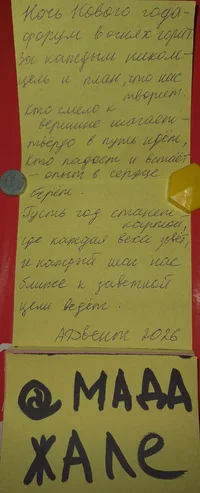 Ночь Нового года -
форум в огнях горит
За каждым ником -
цель и план, что нас
творит.
Кто смело к
вершине шагает -
твердо в путь идёт,
Кто падает и встаёт
- опыт в сердце
берёт.
Пусть год станет -
картой,
где каждая веха зовёт,
и каждый шаг нас
ближе к заветной
цели ведёт.
Адвент 2026
@ МАДА
ЖАЛЕ